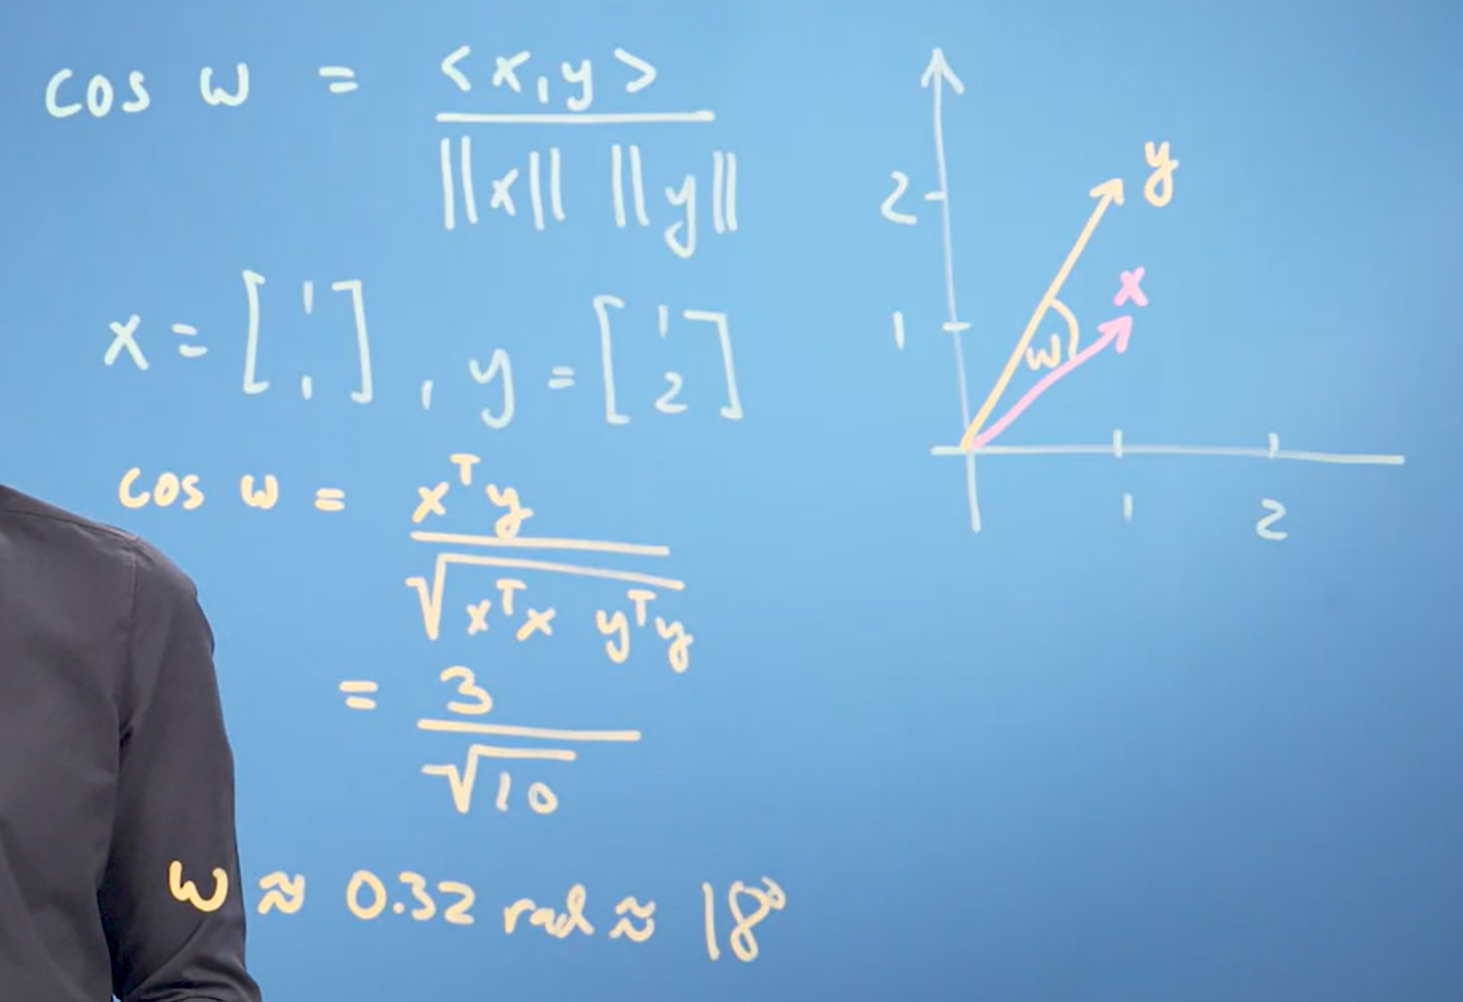 cos ω = <x,y>
||x|| ||y||
x = [1 1], y = [1 2]
cos ω = xᵀy
√xᵀx yᵀy
= 3
√10
ω ≈ 0.32 rad ≈ 18°
y
2
x
1
ω
1 2